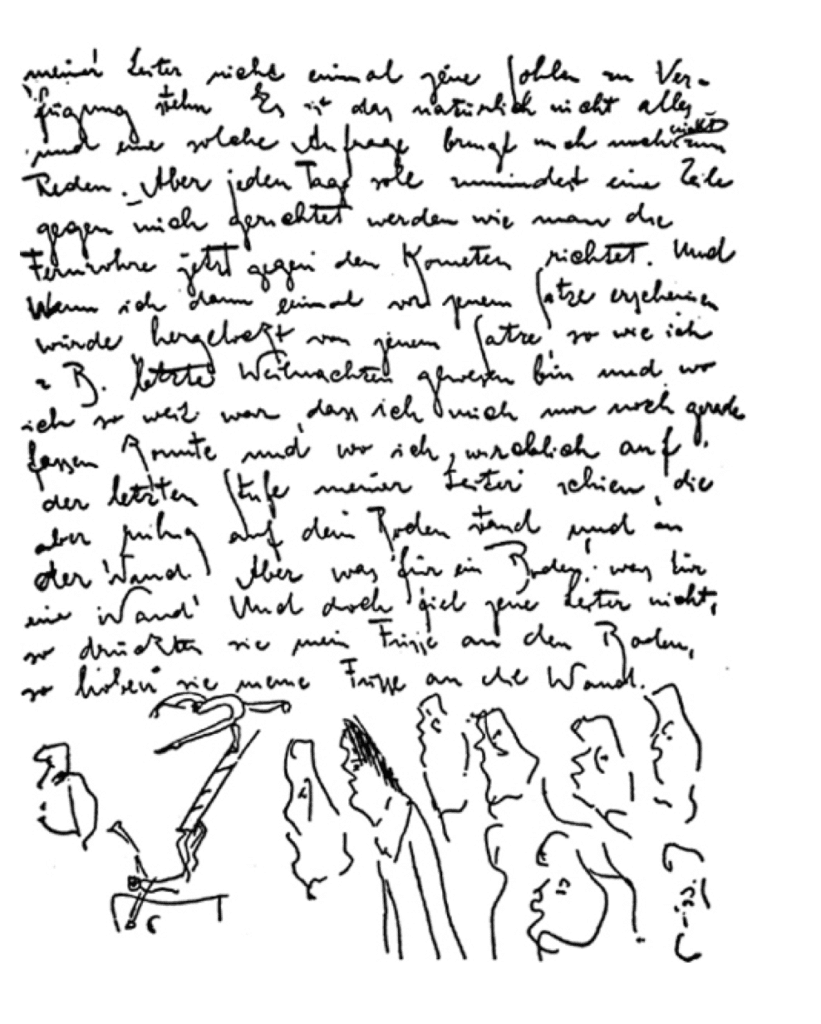 meiner Leiter nicht einmal jene Sohlen zur Ver-
fügung stehn Es ist das natürlich nicht alles
und eine solche Anfrage bringt mich noch nicht zum
Reden. Aber jeden Tag soll zumindest eine Zeile
gegen mich gerichtet werden wie man die
Fernrohre jetzt gegen den Kometen richtet. Und
Wenn ich dann einmal vor jenem Satze erscheinen
würde hergelockt von jenem Satze, so wie ich
z B. letzte Weihnachten gewesen bin und wo
ich so weit war, dass ich mich nur noch gerade
fassen konnte und wo ich wircklich auf
der letzten Stufe meiner Leiter schien, die
aber ruhig auf dem Boden stand und an
der Wand. Aber was für ein Boden, was für
eine Wand! Und doch fiel jene Leiter nicht,
so drückten sie mein Füsse an den Boden,
so hoben sie meine Füsse an die Wand.